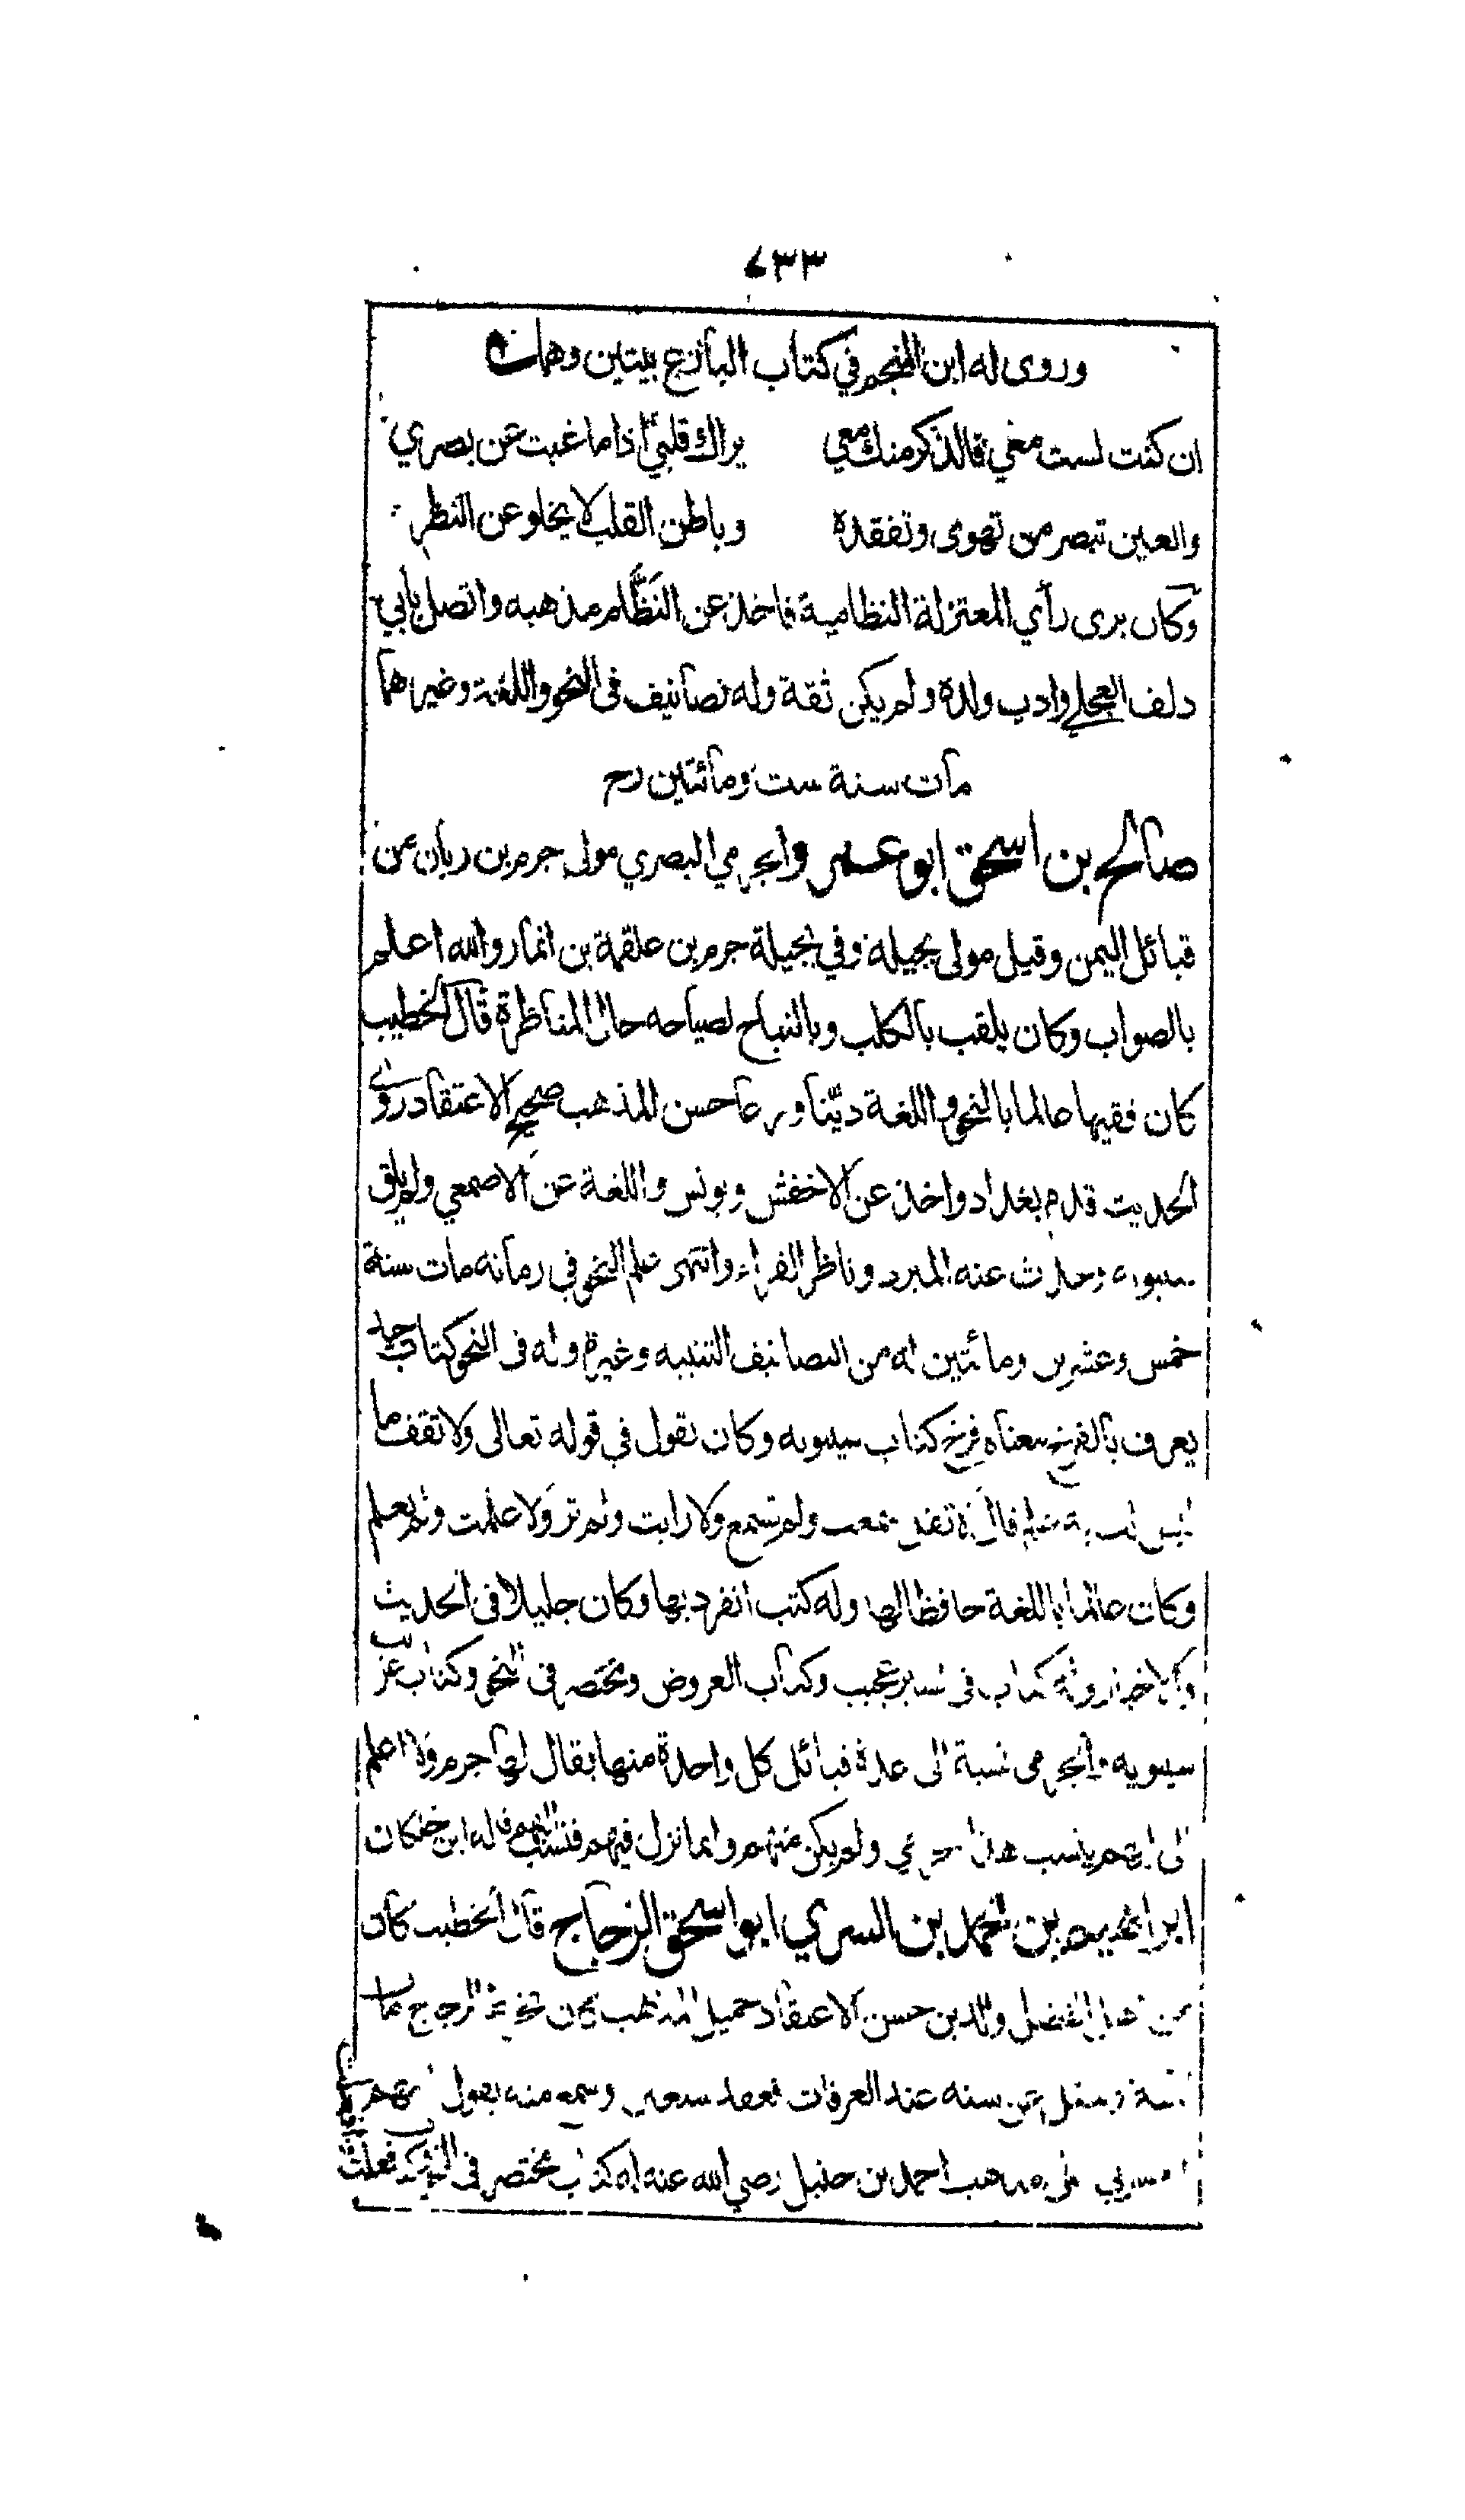 ٦٣٣
وروى له ابن المنجم في كتاب البارع بيتين وهما
ان كنت لست معي فالذكر منك معي يراك قلبي اذا ما غبت عن بصري
والعين تبصر من تهوى وتفقده وباطن القلب لا يخلو عن النظر
وكان يرى رأي المعتزلة النظامية فاخذ عن النَظَّام مذهبه واتصل بابي
دلف العجلي وادب ولده ولم يكن ثقة وله تصانيف في النحو واللغة وغيرهما
مات سنة ست ومائتين رح
صالح بن اسحق ابو عمر والجرمي البصري مولى جرم بن ربان من
قبائل اليمن وقيل مولى بجيله وفي بجيلة جرم بن علقمة بن انمار والله اعلم
بالصواب وكان يلقب بالكلب وبالنباح لصياحه حال المناظرة قال الخطيب
كان فقيها عالما بالنحو واللغة ديّنا ورعا حسن المذهب صحيح الاعتقاد روى
الحديث قدم بغداد واخذ عن الاخفش ويونس واللغة عن الاصمعي ولم يلق
سيبويه وحدث عنه المبرد وناظر الفراء وانتهى علم النحو في زمانه مات سنة
خمس وعشرين ومائتين له من التصانيف التنبيه وغيره وله في النحو كتاب جيد
يعرف بالفرخ معناه فرخ كتاب سيبويه وكان يقول في قوله تعالى ولا تقف ما
ليس لك به علم قال لا تقل سمعت ولم تسمع ولا رايت ولم تر ولا علمت ولم يعلم
وكان عالما باللغة حافظا لها وله كتب انفرد بها وكان جليلا في الحديث
والاخبار وله كتاب في السير عجيب وكتاب العروض ومختصر في النحو وكتاب غريب
سيبويه والجرمي نسبة الى عدة قبائل كل واحدة منها يقال لها جرم ولا اعلم
الى ايهم ينسب هذا الجرمي ولم يكن منهم وانما نزل فيهم فنسب اليهم قاله ابن خلكان
ابراهيم بن محمد بن السري ابو اسحق الزجاج قال الخطيب كان
من اهل الفضل والدين حسن الاعتقاد جميل المذهب كان يخرط الزجاج
وسئل عن سنه عند الوفات فعقد سبعين وسمع منه يقول اللهم
احشرني على مذهب احمد بن حنبل رضي الله عنه له كتاب مختصر في فعلت